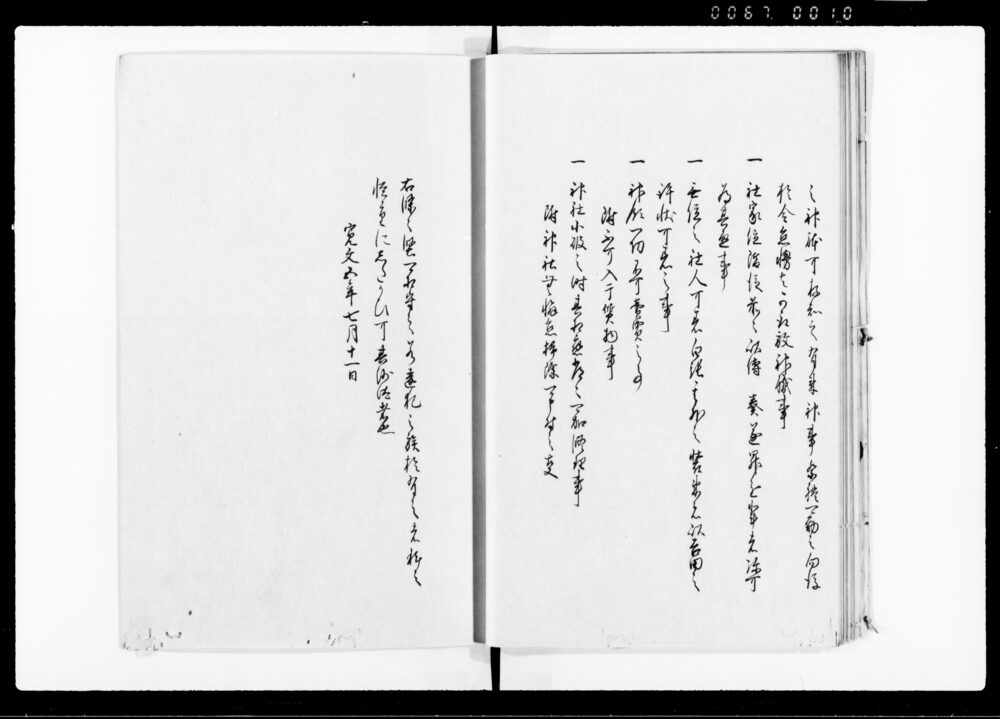 0067 0010
之神躰可存知之有来神事祭礼可勤之向後
於令怠慢者可取放神職事
一 社家位階従前々以傳 奏遂昇進輩者弥可
為其通事
一 無位之社人可着白張其外之装束者以吉田之
許状可着之事
一 神領一切不可賣買之事
附不可入于質物事
一 神社小破之時其相應常々可加修理事
附神社無懈怠掃除可申付之事
右條々堅可相守之若違犯之族於有之者科之
軽重にしたかひ可有沙汰者也
寛文五年七月十一日